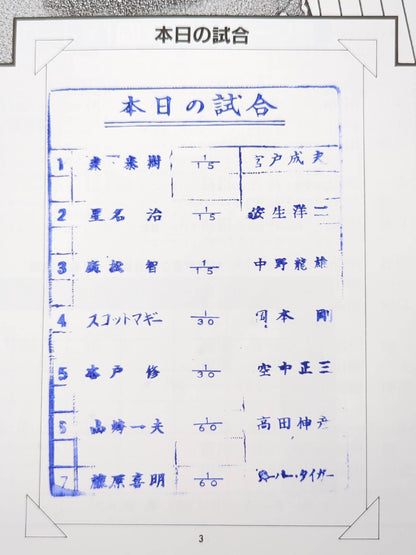 本日の試合
本日の試合
1 森 泰樹 1/15 宍戸成夫
2 星名 治 1/15 安生洋二
3 廣松 智 1/15 中野龍雄
4 スコットマギー 1/30 岡本 剛
5 木戸 修 1/30 空中正三
6 山崎一夫 1/60 高田伸彦
7 藤原喜明 1/60 スーパー・タイガー
3